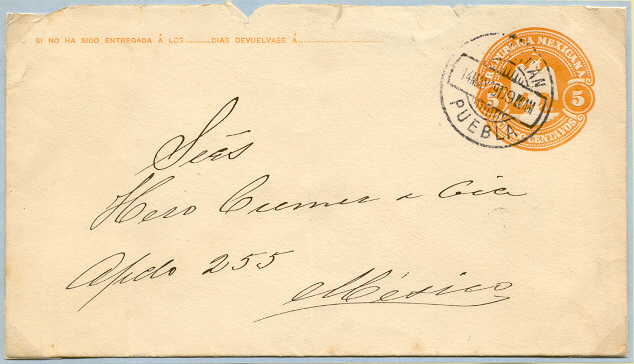 SI NO HA SIDO ENTREGADA Á LOS..........DIAS DEVUELVASE Á..............................
REPUBLICA MEXICANA
5
CENTAVOS
PUEBLA
Sres
Cremer & Cia
Apdo 255
México